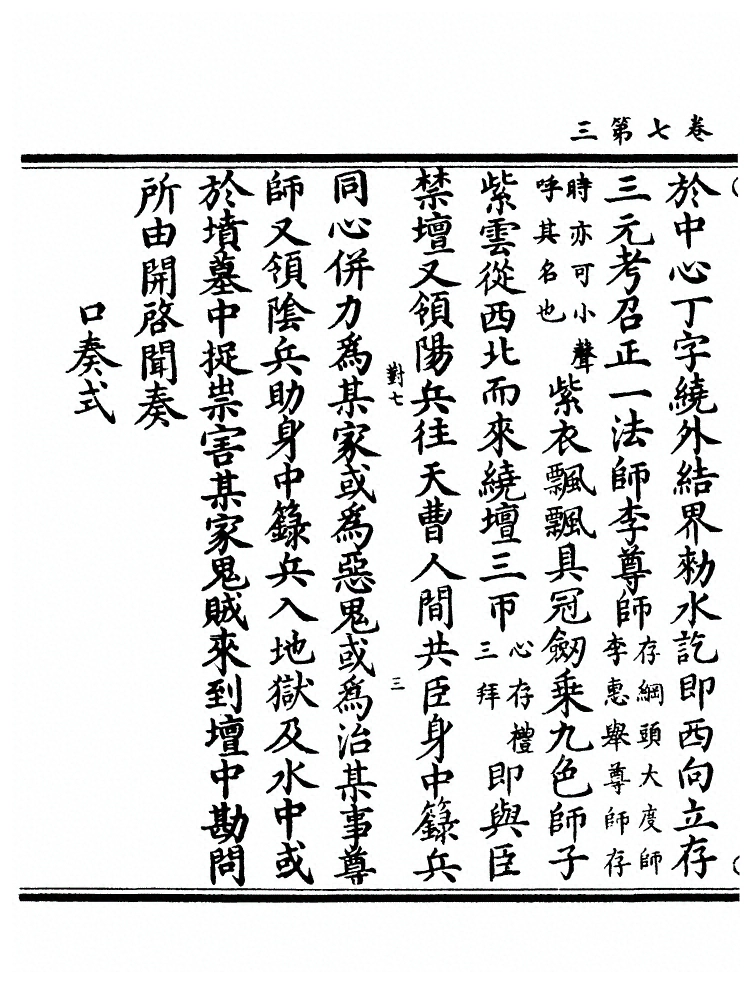 卷七第三
於中心丁字繞外結界勑水訖即西向立存
三元考召正一法師李尊師存綱頭大度師李惠舉尊師存
時亦可小聲呼其名也紫衣飄飄具冠劔乗九色師子
紫雲從西北而來繞壇三帀心存禮三拜即與臣
禁壇又領陽兵往天曹人間共臣身中籙兵
對七 三
同心併力爲某家或爲惡鬼或爲治某事尊
師又領陰兵助身中籙兵入地獄及水中或
於墳墓中捉祟害某家鬼賊來到壇中勘問
所由開啓聞奏
口奏式